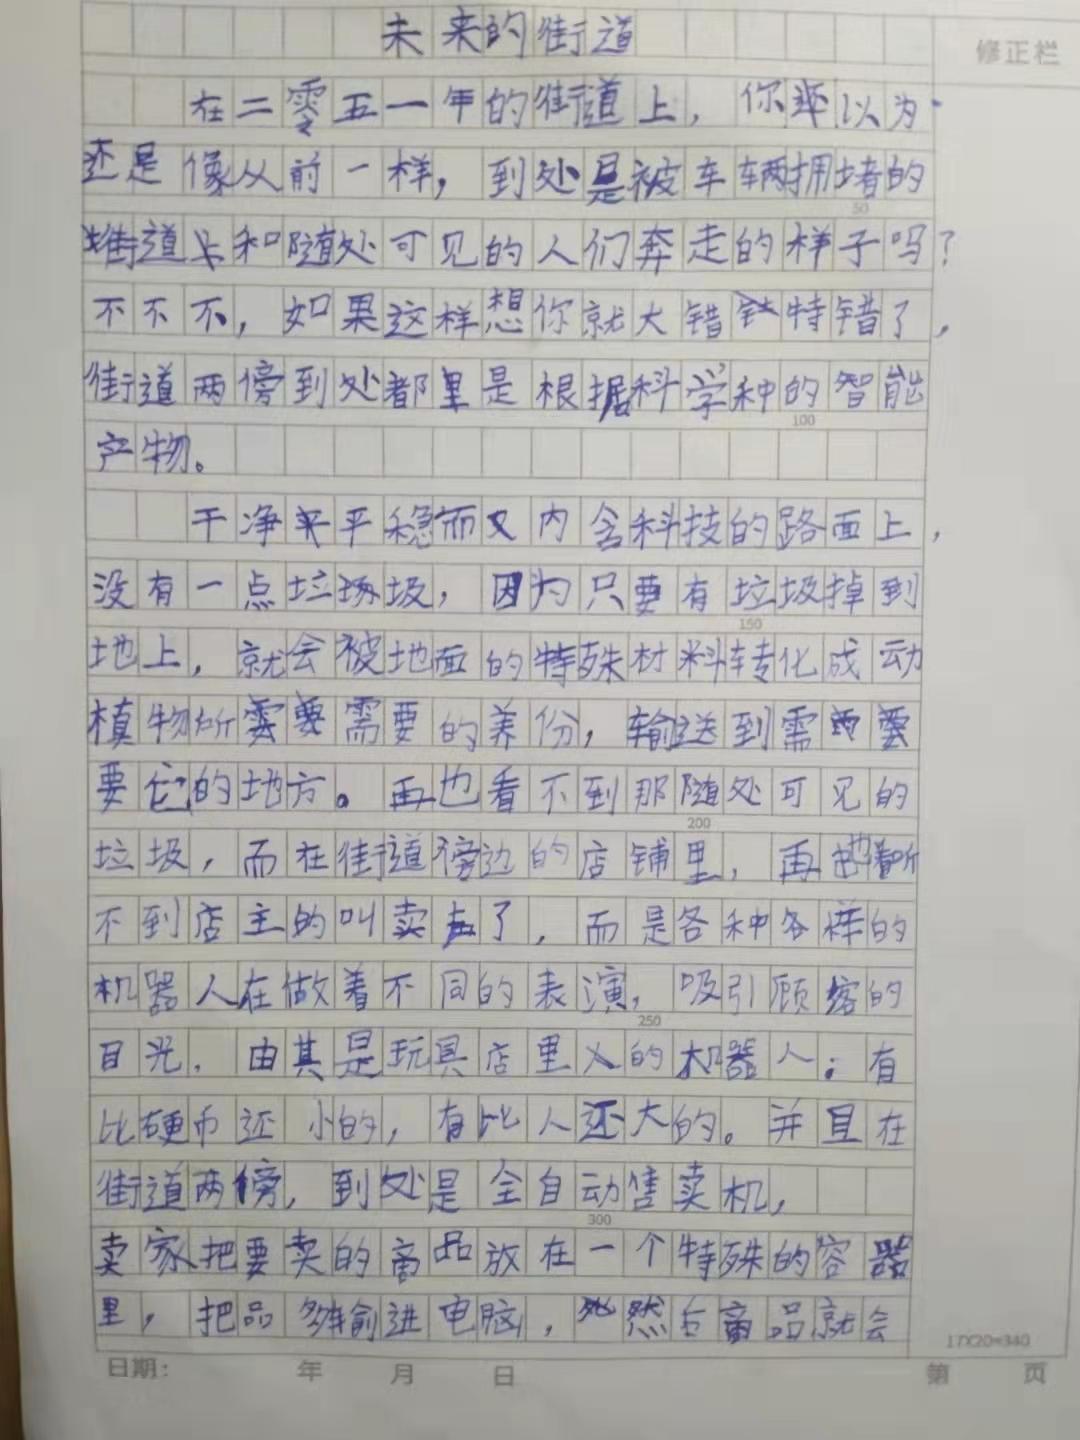 未来的街道
修正栏
在二零五一年的街道上，你以为
还是像从前一样，到处是被车辆拥堵的
50
街道和随处可见的人们奔走的样子吗？
不不不，如果这样想你就大错特错了，
街道两傍到处都里是根据科学种的智能
100
产物。
干净平稳而又内含科技的路面上，
没有一点垃圾，因为只要有垃圾掉到
150
地上，就会被地面的特殊材料转化成动
植物所需要的养份，输送到需
要它的地方。再也看不到那随处可见的
200
垃圾，而在街道傍边的店铺里，再也听
不到店主的叫卖了，而是各种各样的
机器人在做着不同的表演，吸引顾客的
250
目光．由其是玩具店里的机器人：有
比硬币还小的，有比人还大的。并且在
街道两傍，到处是全自动售卖机，
300
卖家把要卖的商品放在一个特殊的容器
里，把品输进电脑，然后商品就会
17X20=340
日期： 年 月 日 第 页